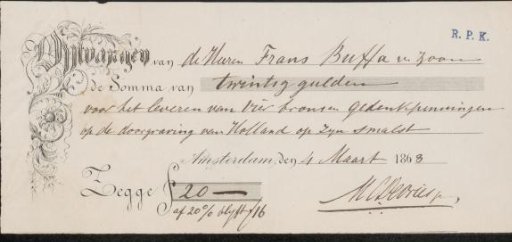 R. P. K.
Ontvangen van de Heeren Frans Buffa en Zoon
de Somma van twintig gulden
voor het leveren van vier bronsen gedenkpenningen
op de doorgraving van Holland op zijn smalst
Amsterdam, den 4 Maart 1863
Zegge ƒ 20 —
af 20% blijft ƒ 16